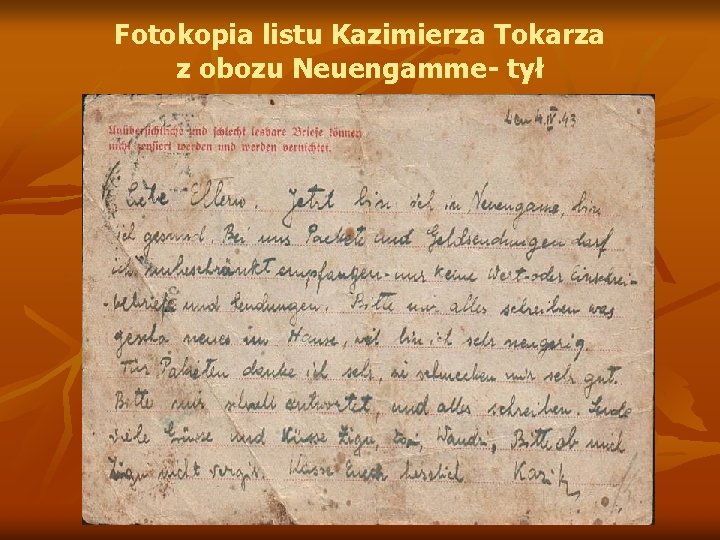 Fotokopia listu Kazimierza Tokarza
z obozu Neuengamme- tył
Den 4.IV.43
Unübersichtliche und schlecht lesbare Briefe können
nicht zensiert werden und werden vernichtet.
Liebe Eltern. Jetzt bin ich in Neuengame, bin
ich gesund. Bei uns Packete und Geldsendungen darf
ich unbeschränkt empfangen - nur keine Wert-oder Einschrei-
-bebriefe und Sendungen. Bitte mir alles schreiben was
neues im Hause, bin ich sehr neugerig.
Für Paketen danke ich sehr, sie schmecken mir sehr gut.
Bitte mir schnell antwortet, und alles schreiben. Sende
viele Grüsse und Küsse Zigu, Wandzi, Bitte ob mich
Zigu nicht vergis. Küsse Euch herzlich Kazik